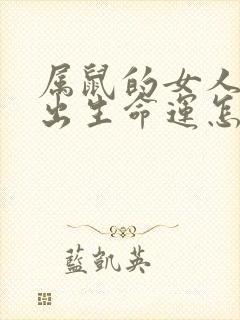 属鼠的女人
出生命运怎
藍凱英